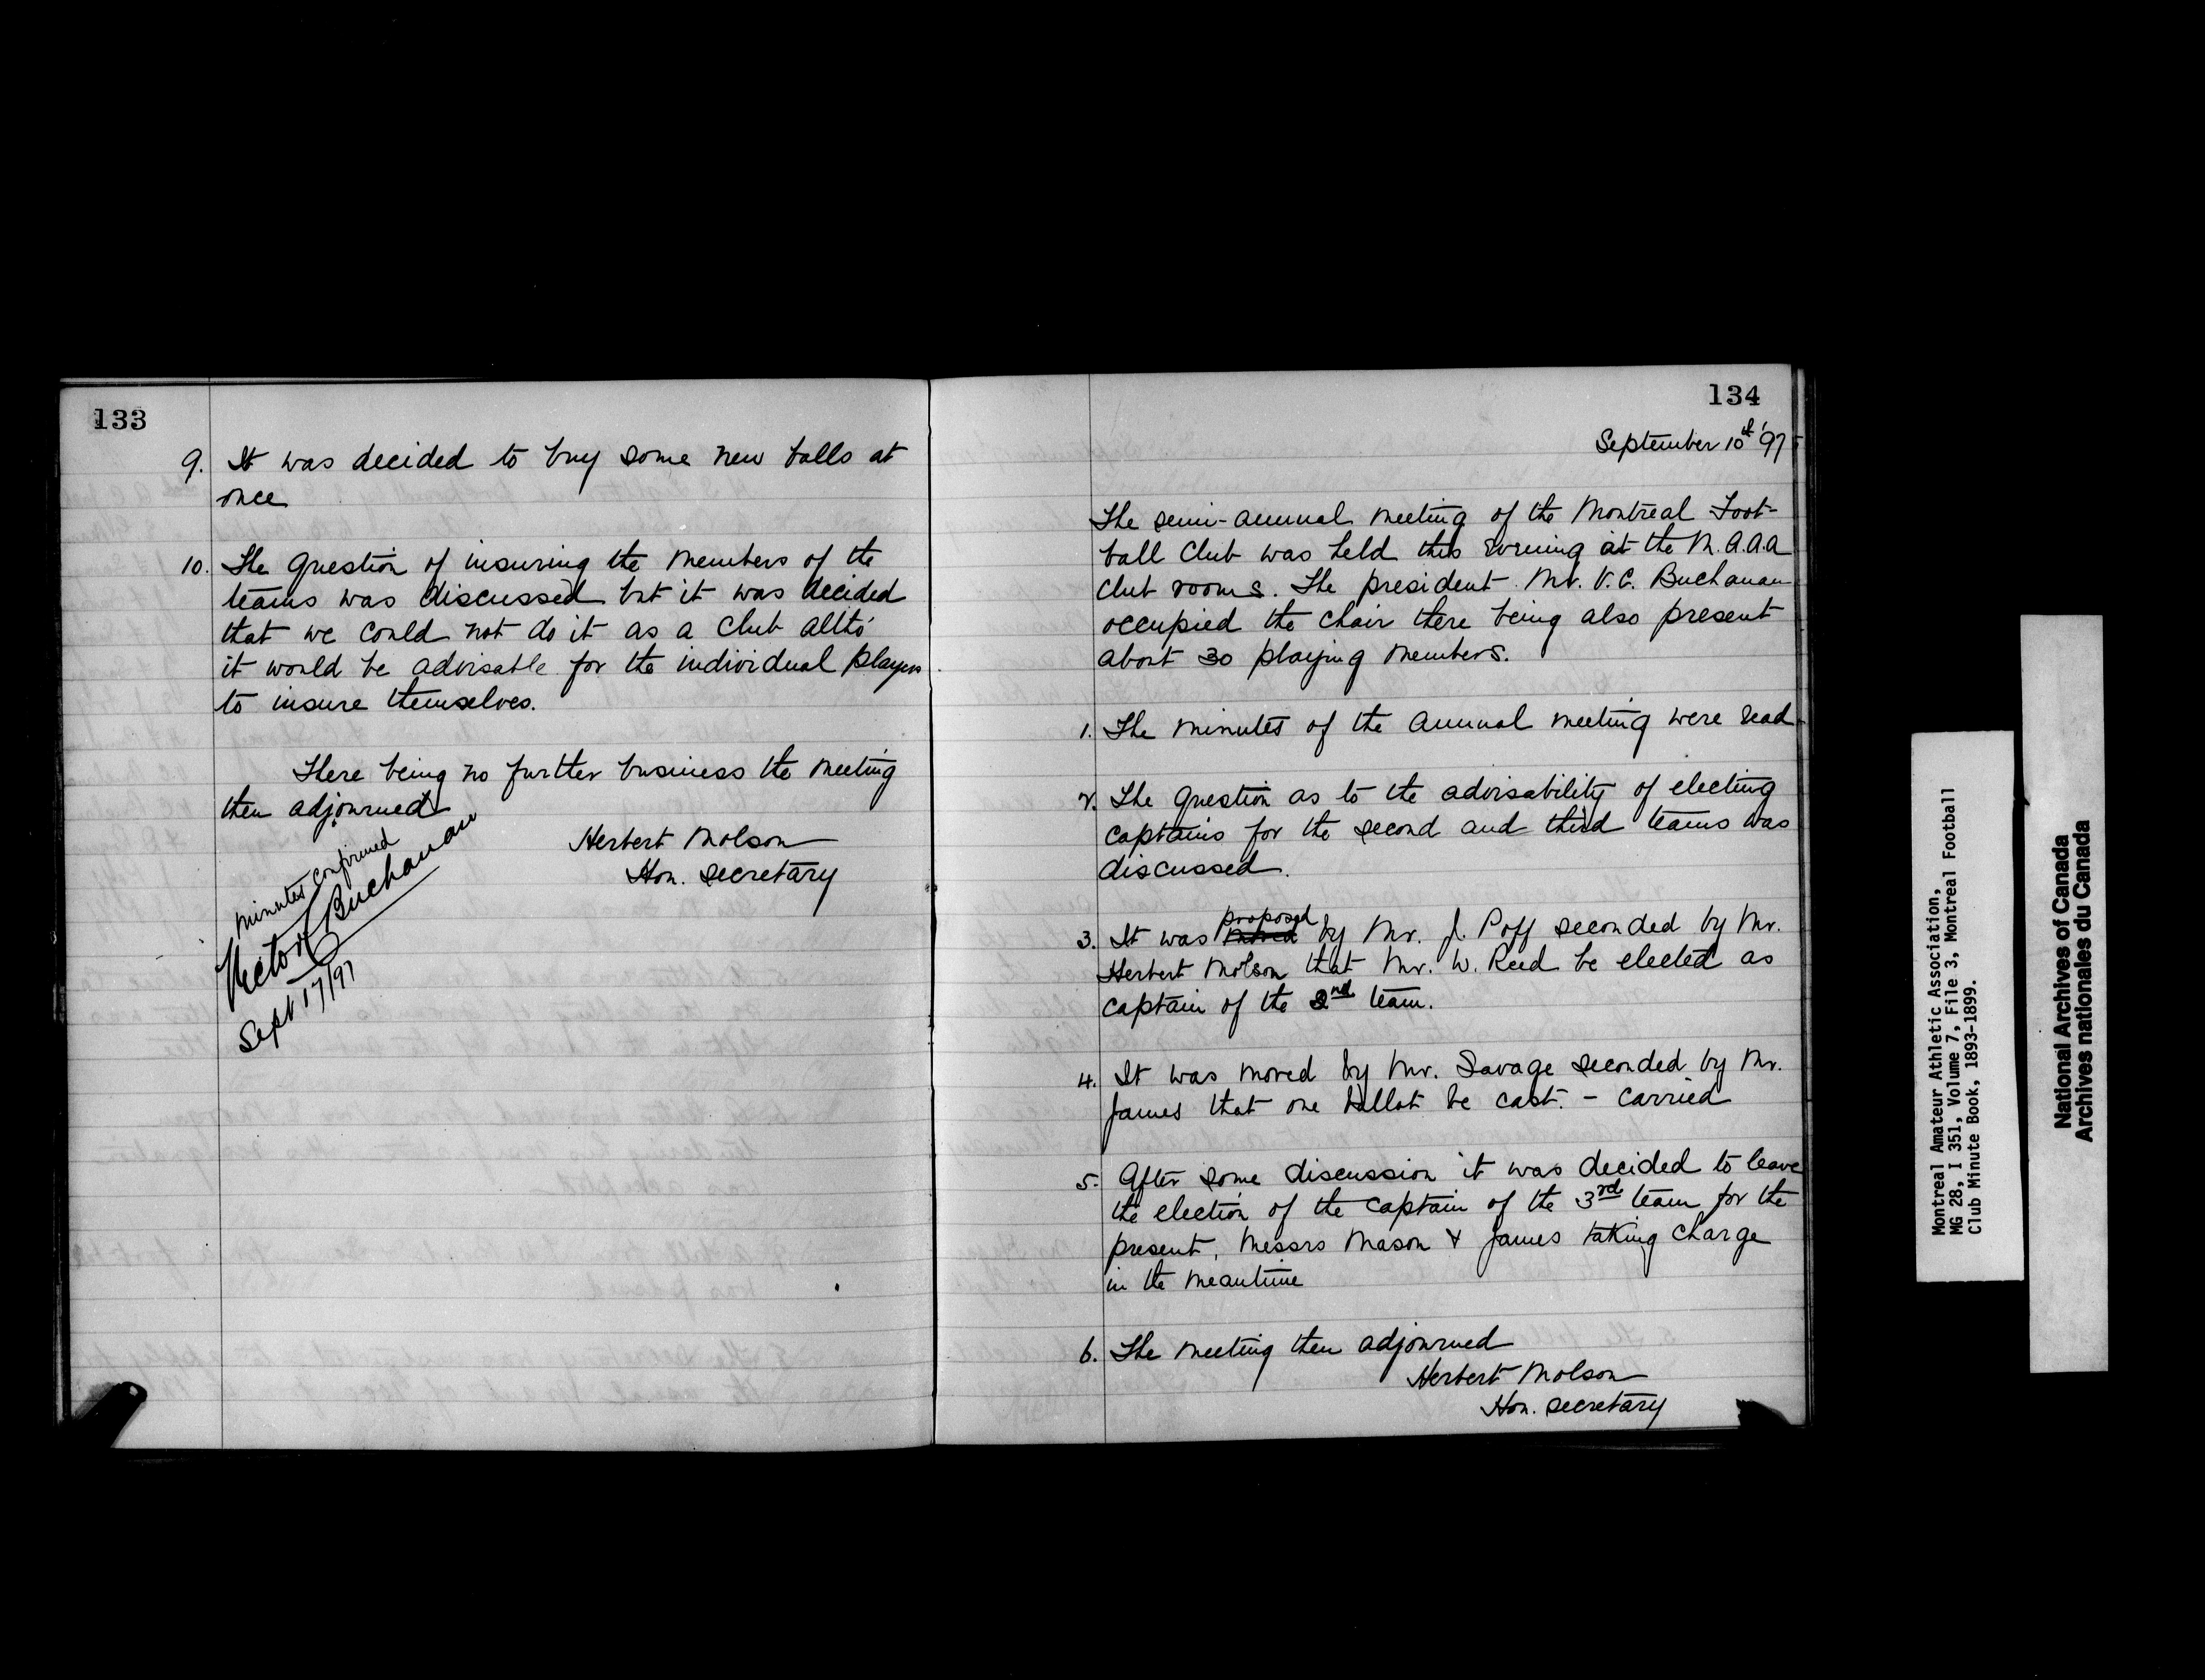 133
9. It was decided to buy some new balls at
once
10. The question of insuring the members of the
teams was discussed but it was decided
that we could not do it as a club altho'
it would be advisable for the individual players
to insure themselves.
There being no further business the meeting
then adjourned
Herbert Molson
Hon. Secretary
Minutes confirmed
Victor Buchanan
Sept 17/97
134
September 10th '97
The semi-annual meeting of the Montreal Foot-
ball Club was held this evening at the M.A.A.A
Club rooms. The president Mr. V.C. Buchanan
occupied the chair there being also present
about 30 playing members.
1. The minutes of the annual meeting were read
2. The question as to the advisability of electing
captains for the second and third teams was
discussed.
proposed
3. It was moved by Mr. J. Poff seconded by Mr.
Herbert Molson that Mr. W. Reed be elected as
captain of the 2nd team.
4. It was moved by Mr. Savage seconded by Mr.
James that one ballot be cast. - Carried
5. After some discussion it was decided to leave
the election of the captain of the 3rd team for the
present, Messrs Mason & James taking charge
in the meantime
6. The meeting then adjourned
Herbert Molson
Hon. Secretary
Montreal Amateur Athletic Association,
MG 28, I 351, Volume 7, File 3, Montreal Football
Club Minute Book, 1893-1899.
National Archives of Canada
Archives nationales du Canada